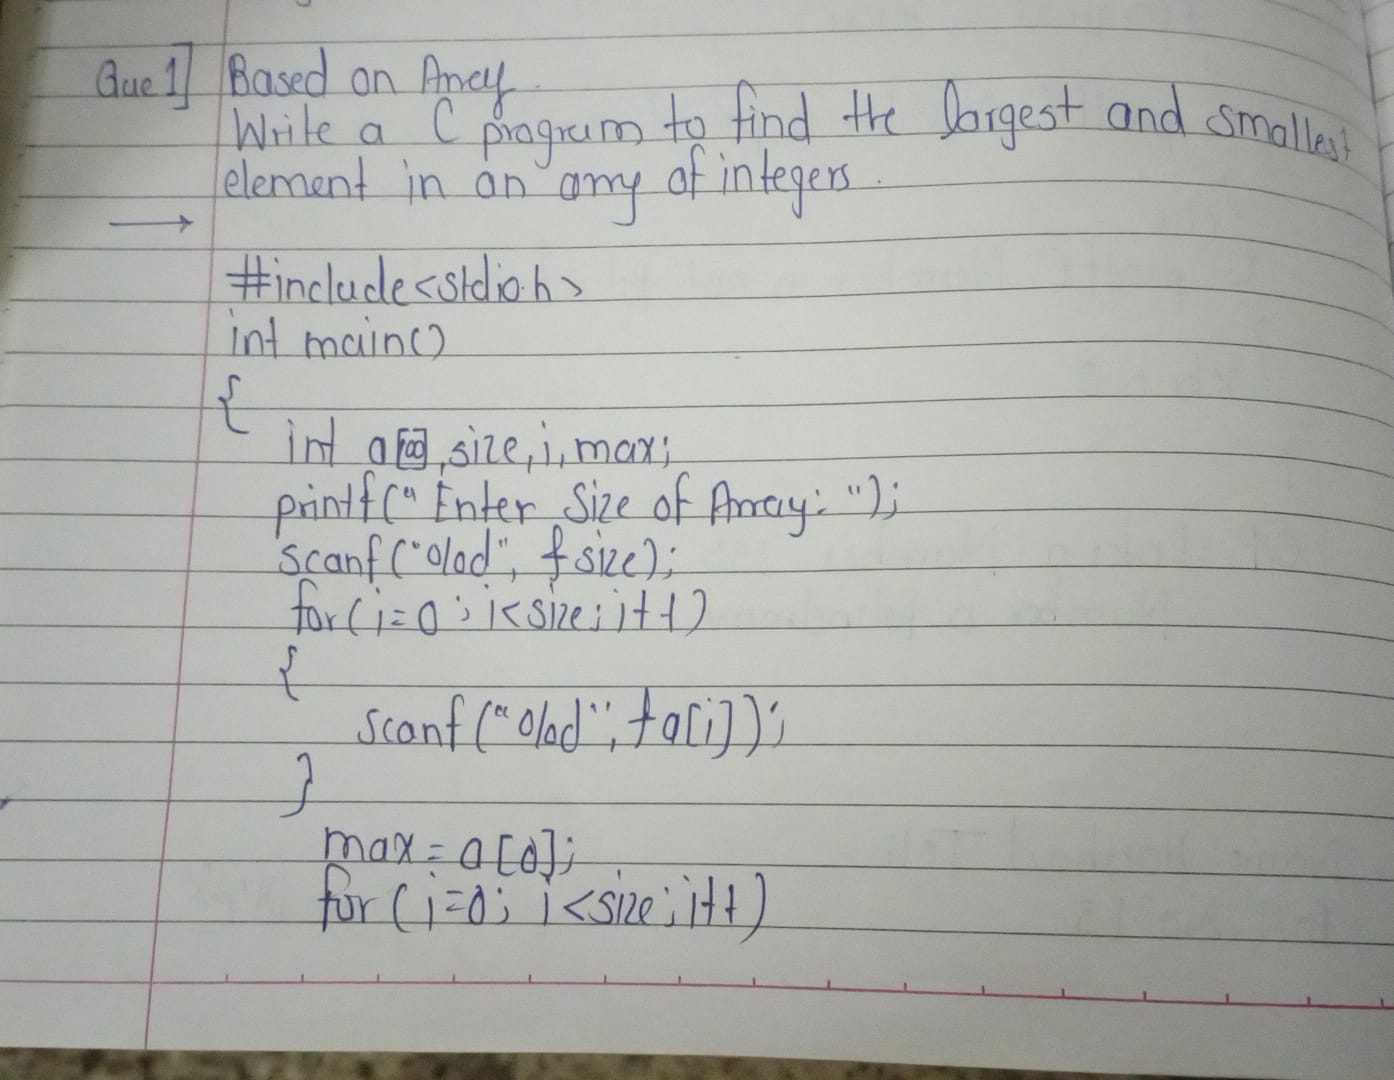 Que 1] Based on Array.
Write a C program to find the largest and smallest
element in an array of integers.
#include<stdio.h>
int main()
{
int a[20],size,i,max;
printf("Enter Size of Array: ");
scanf("%d", &size);
for(i=0; i<size; i++)
{
scanf("%d", &a[i]);
}
max=a[0];
for(i=0; i<size; i++)